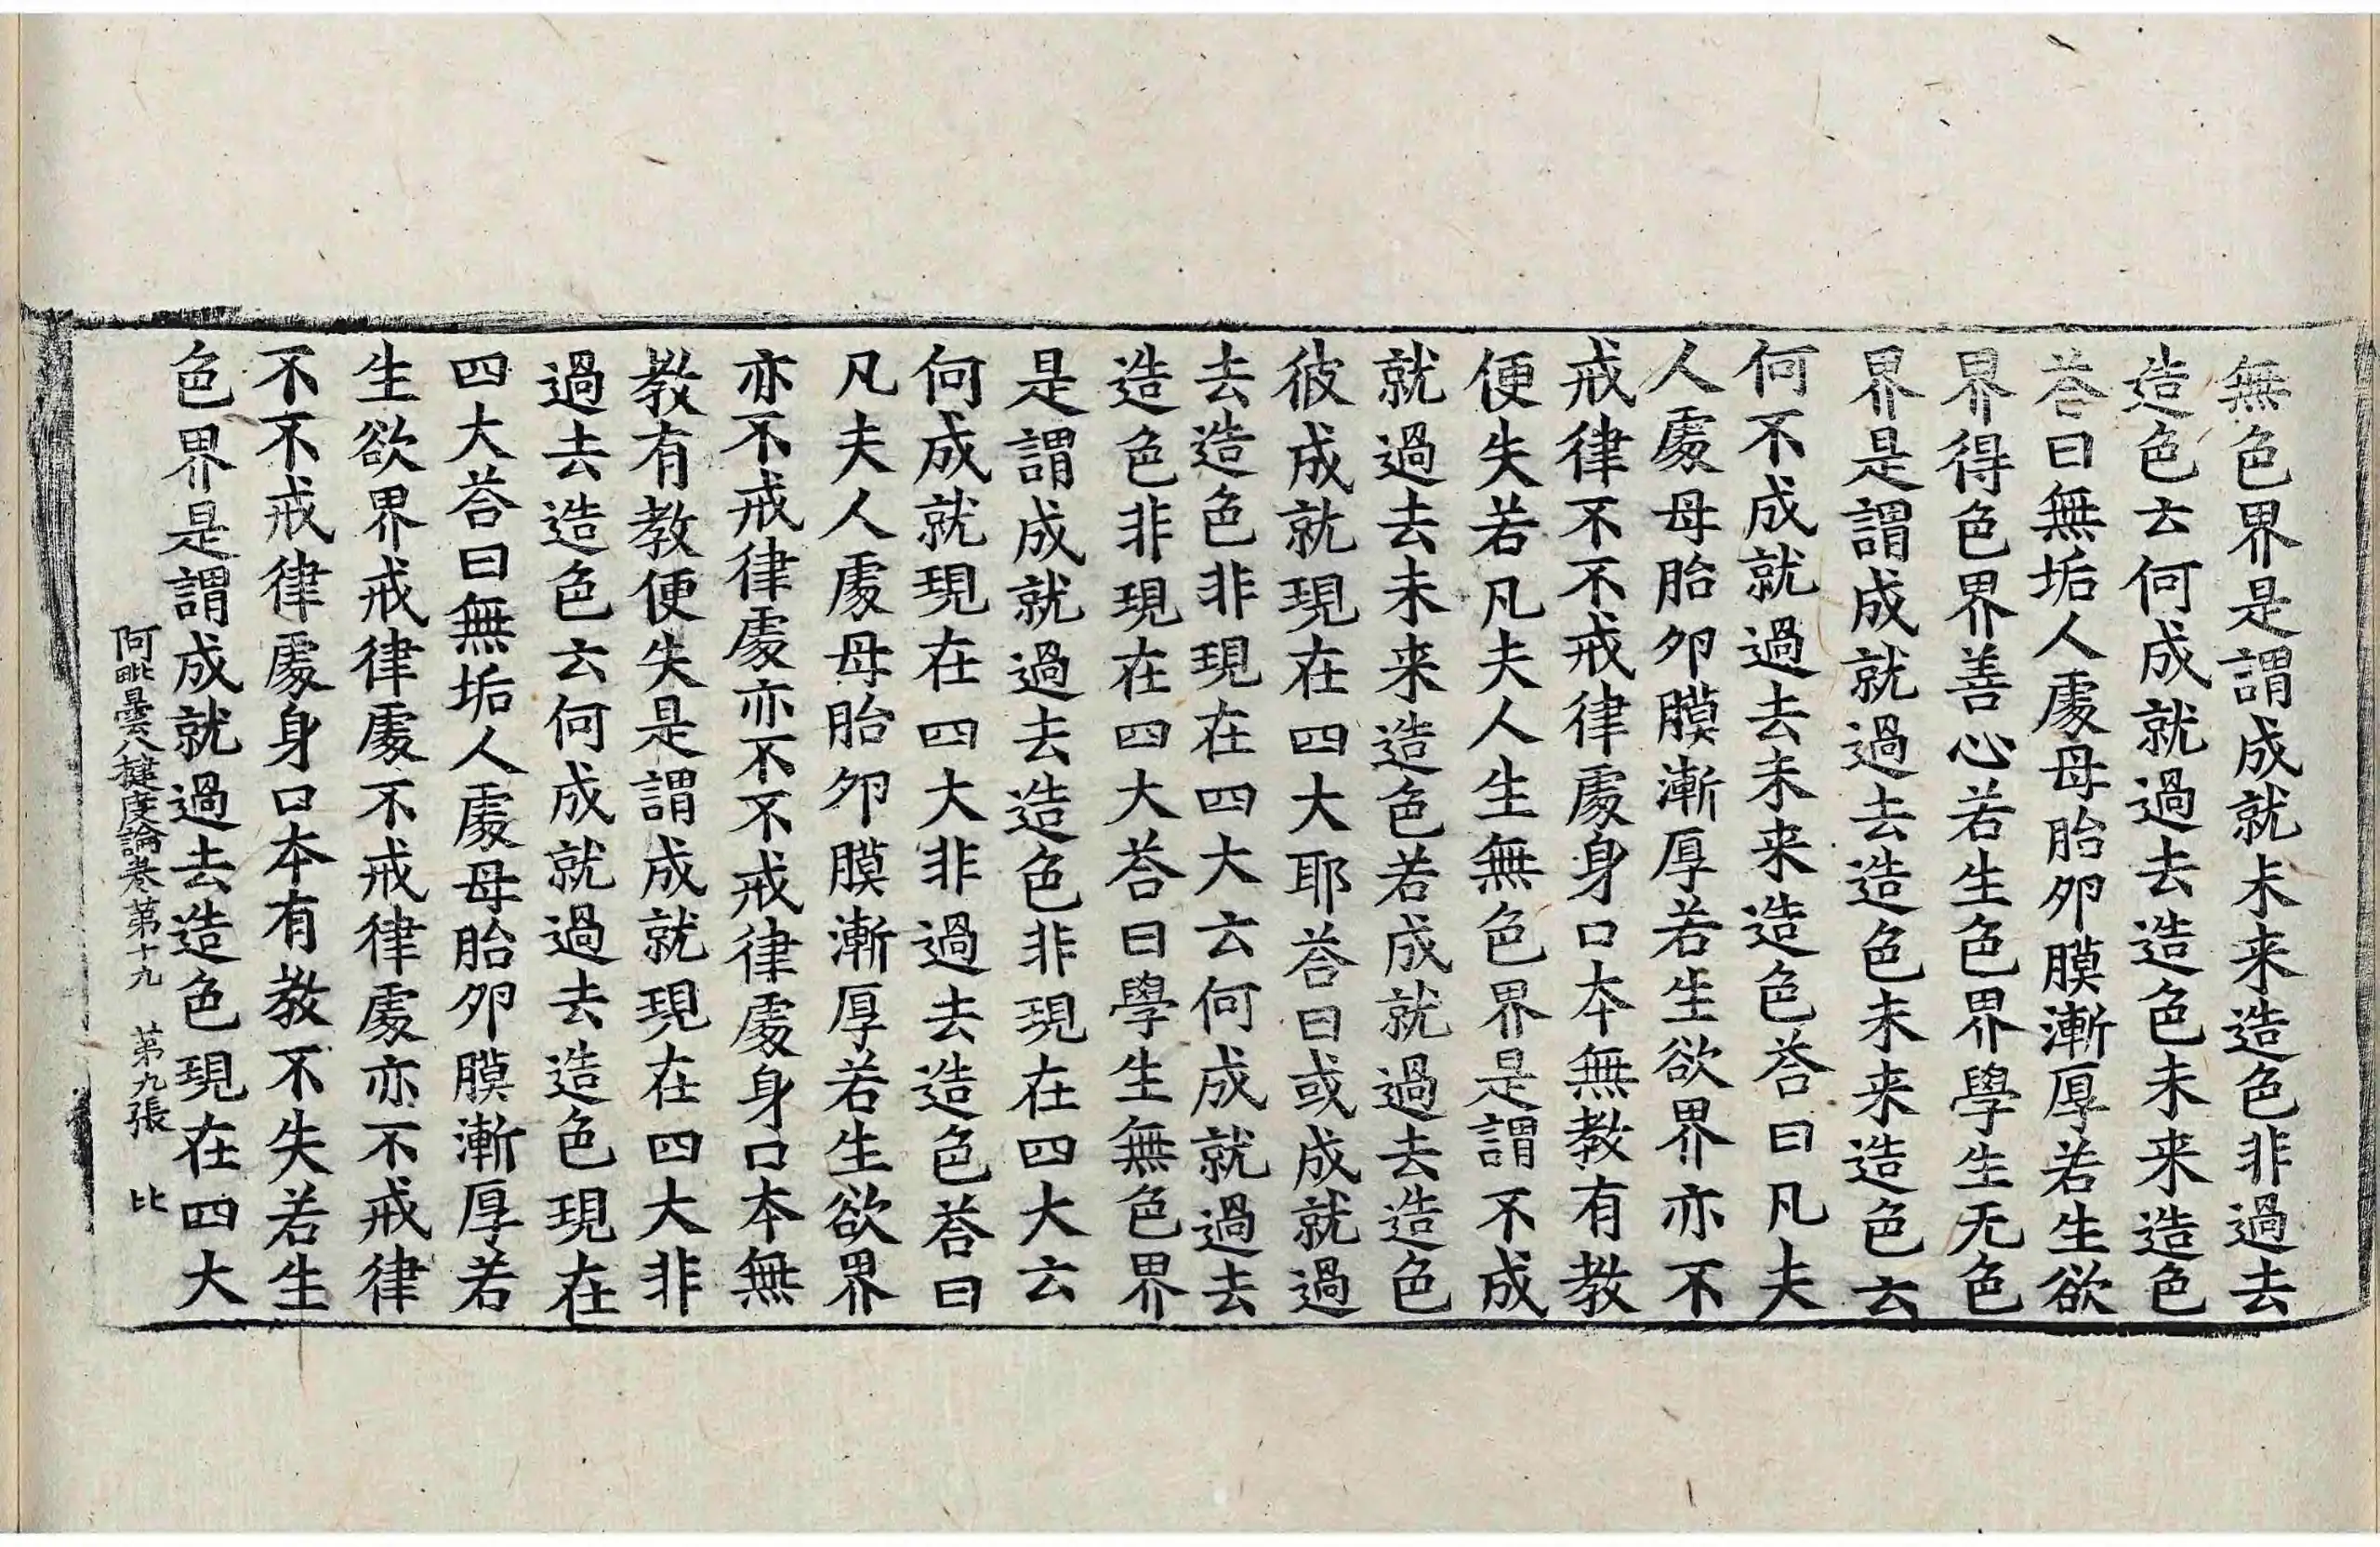 無色界是謂成就未来造色非過去
造色云何成就過去造色未来造色
荅曰無垢人處母胎卵膜漸厚若生欲
界得色界善心若生色界學生无色
界是謂成就過去造色未来造色云
何不成就過去未来造色荅曰凡夫
人處母胎卵膜漸厚若生欲界亦不
戒律不不戒律處身口本無教有教
便失若凡夫人生無色界是謂不成
就過去未来造色若成就過去造色
彼成就現在四大耶荅曰或成就過
去造色非現在四大云何成就過去
造色非現在四大荅曰學生無色界
是謂成就過去造色非現在四大云
何成就現在四大非過去造色荅曰
凡夫人處母胎卵膜漸厚若生欲界
亦不戒律處亦不不戒律處身口本無
教有教便失是謂成就現在四大非
過去造色云何成就過去造色現在
四大荅曰無垢人處母胎卵膜漸厚若
生欲界戒律處不戒律處亦不戒律
不不戒律處身口本有教不失若生
色界是謂成就過去造色現在四大
阿毗曇八揵度論卷第十九 第九張 比